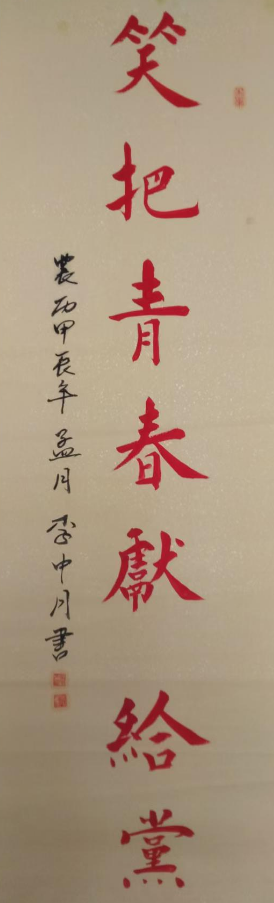 笑把青春獻給黨
農历甲辰年孟月 李中月書